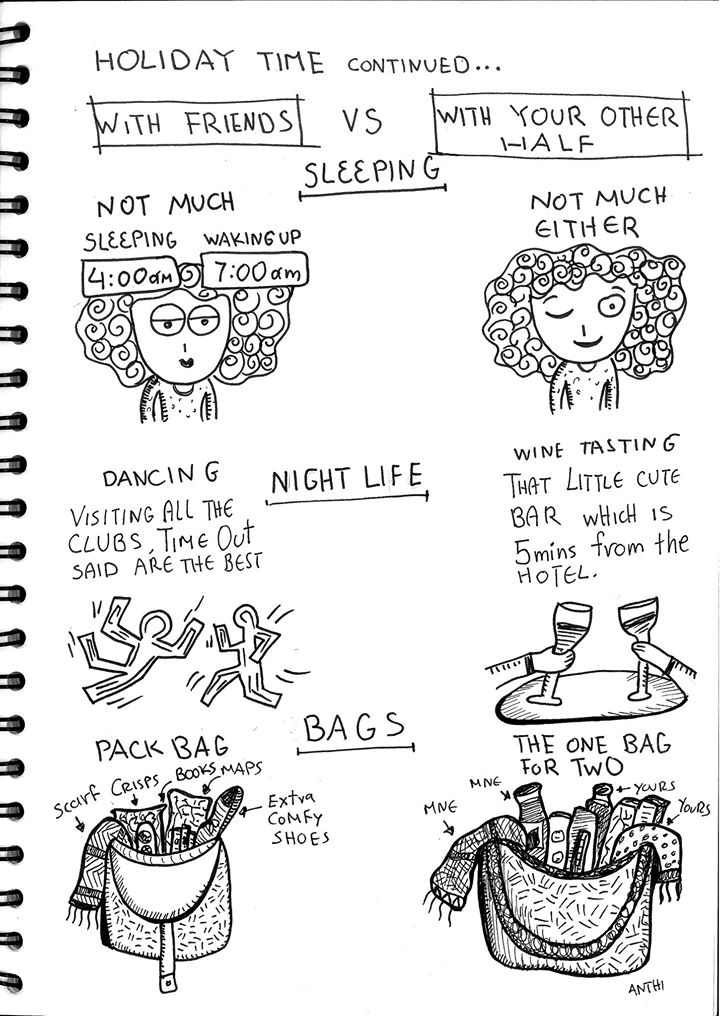 HOLIDAY TIME CONTINUED...
WITH FRIENDS
VS
WITH YOUR OTHER
HALF
SLEEPING
NOT MUCH
SLEEPING
4:00am
WAKING UP
7:00am
NOT MUCH
EITHER
NIGHT LIFE
DANCING
VISITING ALL THE
CLUBS, TIME OUT
SAID ARE THE BEST
WINE TASTING
THAT LITTLE CUTE
BAR WHICH IS
5mins from the
HOTEL.
BAGS
PACK BAG
SCARF
CRISPS
BOOKS
MAPS
Extra
COMFY
SHOES
THE ONE BAG
FOR TWO
MNE
MNE
YOURS
YOURS
ANTHI